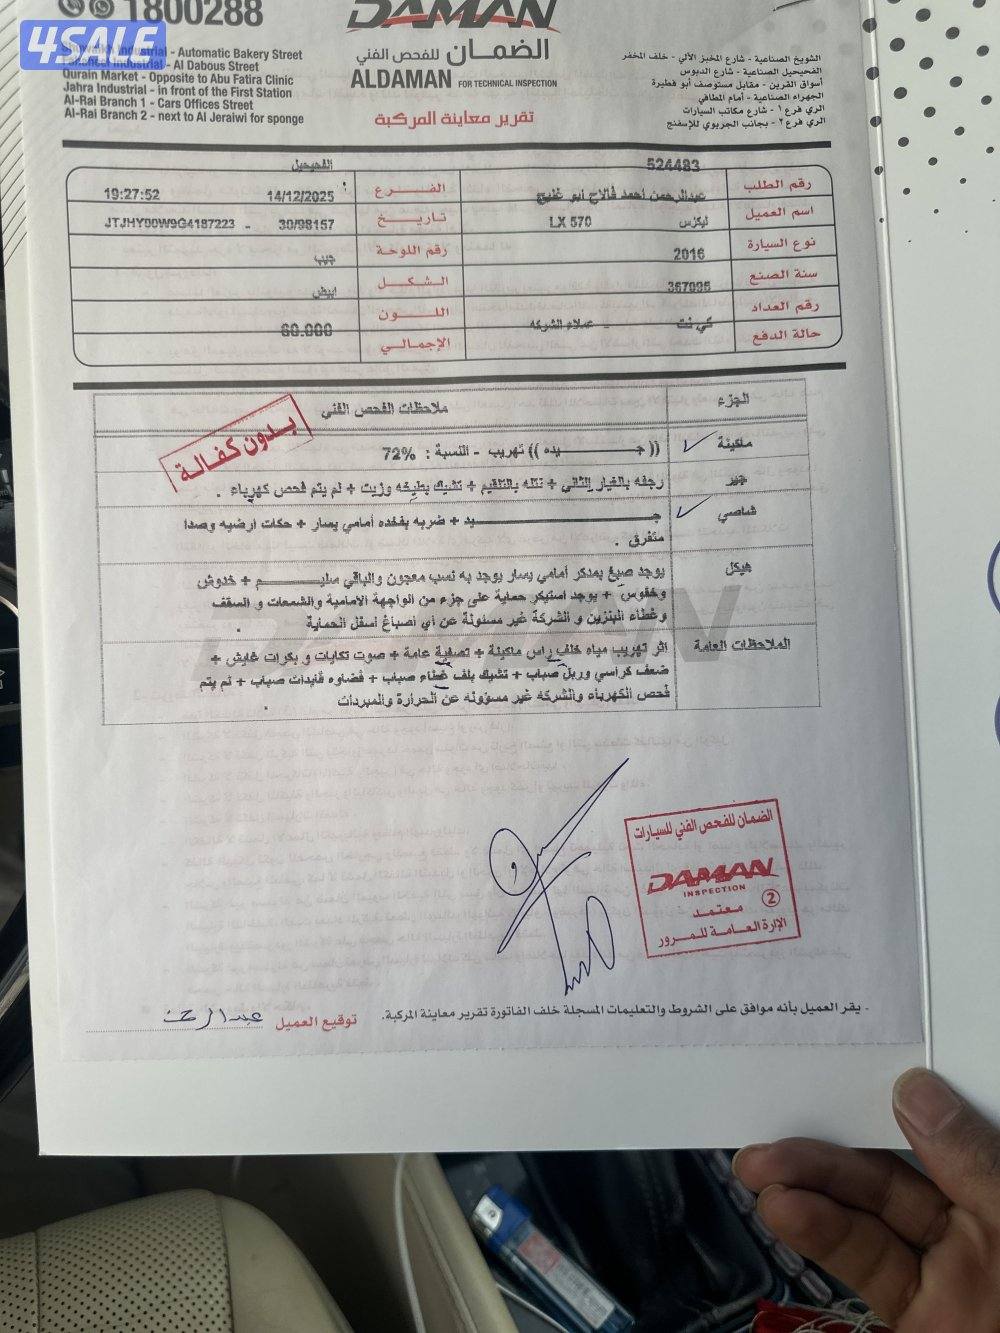 1800288
4SALE
Shuwaikh Industrial - Automatic Bakery Street
Fahaheel Industrial - Al Dabous Street
Qurain Market - Opposite to Abu Fatira Clinic
Jahra Industrial - in front of the First Station
Al-Rai Branch 1 - Cars Offices Street
Al-Rai Branch 2 - next to Al Jeraiwi for sponge
DAMAN
الضمان للفحص الفني
ALDAMAN FOR TECHNICAL INSPECTION
تقرير معاينة المركبة
الشويخ الصناعية - شارع المخبز الآلي - خلف المخفر
الفحيحيل الصناعية - شارع الدبوس
أسواق القرين - مقابل مستوصف أبو فطيرة
الجهراء الصناعية - أمام المطافي
الري فرع ١ - شارع مكاتب السيارات
الري فرع ٢ - بجانب الجريوي للإسفنج
رقم الطلب 524483 الفرع الفحيحيل
اسم العميل عبدالرحمن احمد فالاح ابو غليج تاريخ 14/12/2025 19:27:52
نوع السيارة ليكزس LX 570 رقم اللوحة 30/98157 - JTJHY00W9G4187223
سنة الصنع 2016 الشكل جيب
رقم العداد 367095 اللون ابيض
حالة الدفع كي نت - عملاء الشركه الإجمالي 60.000
الجزء ملاحظات الفحص الفني
بدون كفالة
ماكينة (( جـــــيده )) تهريب - النسبة : 72%
جير رجفه بالغيار الثاني + نتله بالتقيم + تشيك بطيخه وزيت + لم يتم فحص كهرباء .
شاصي جـــــيد + ضربه بفخده أمامي يسار + حكات ارضيه وصدا
متفرق .
هيكل يوجد صبغ بمدكر أمامي يسار يوجد به نسب معجون والباقي سليـــــم + خدوش
وخفوس + يوجد استيكر حماية على جزء من الواجهة الامامية والشمعات و السقف
وغطاء البنزين و الشركة غير مسئولة عن أي أصباغ أسفل الحماية .
الملاحظات العامة اثر تهريب مياه خلف راس ماكينة + تصفية عامة + صوت تكايات و بكرات قايش +
ضعف كراسي وربل صباب + تشيك بلف غطاء صباب + فضاوه قايدات صباب + لم يتم
فحص الكهرباء والشركه غير مسؤوله عن الحرارة والمبردات .
الضمان للفحص الفني للسيارات
DAMAN
INSPECTION
2
معتمد
الإرة العامة للمرور
- يقر العميل بأنه موافق على الشروط والتعليمات المسجلة خلف الفاتورة تقرير معاينة المركبة.
توقيع العميل عبدالرحمن